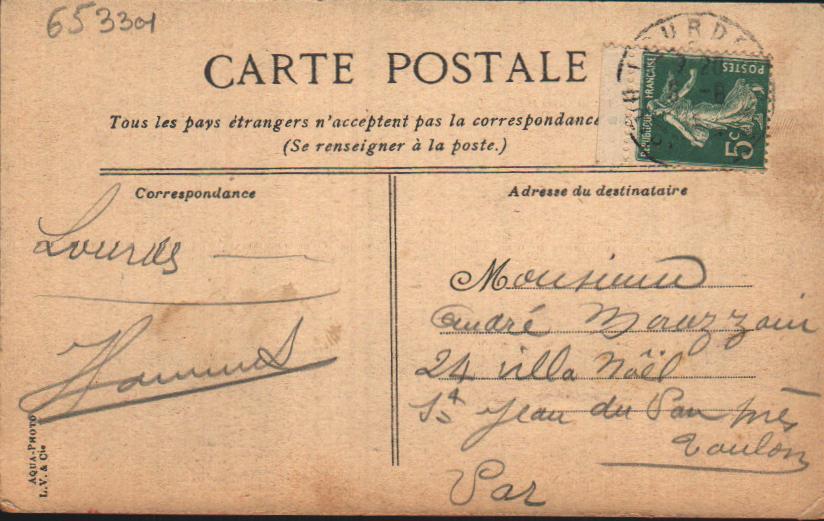 653301
CARTE POSTALE
Tous les pays étrangers n'acceptent pas la correspondance
(Se renseigner à la poste.)
POSTES
REPUBLIQUE FRANÇAISE
5c
Correspondance
Lourdes
AQUA-PHOTO
L.V. & Cie
Adresse du destinataire
Monsieur
André
24 villa Noël
St Jean du Var près
Toulon
Var